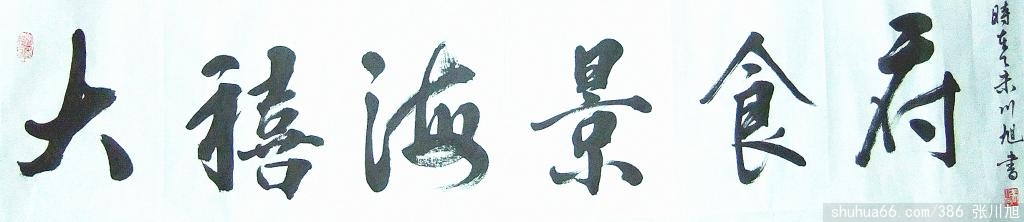 大禧海景食府
時在乙未川旭書
shuhua66.com/386 张川旭